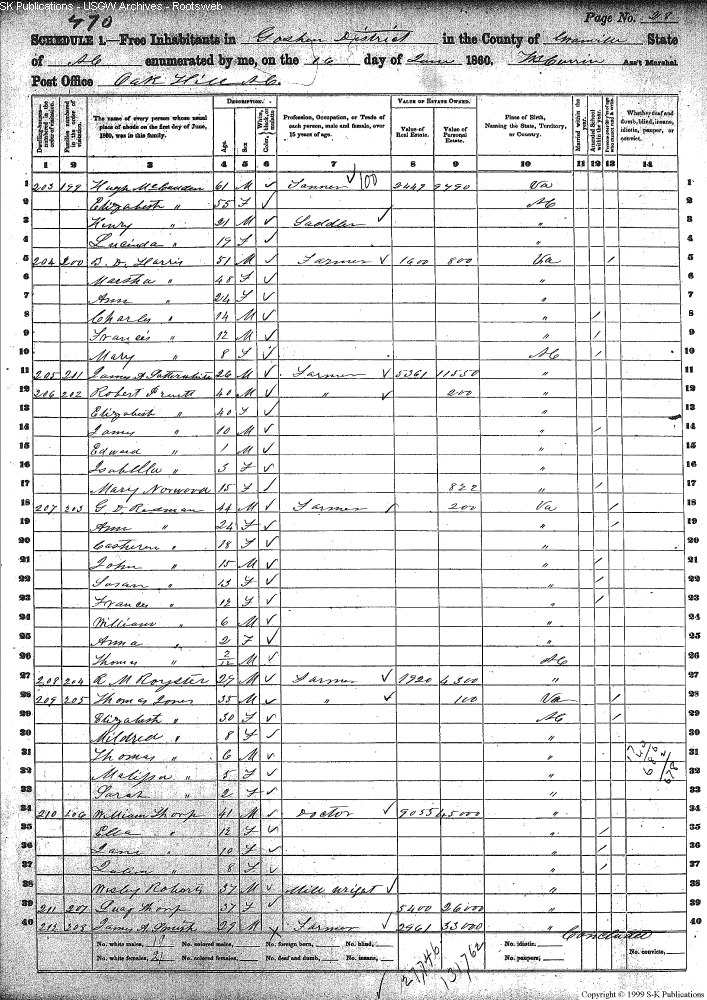 SK Publications - USGW Archives - Rootsweb
470
Page No. 28
SCHEDULE 1.—Free Inhabitants in Goshen District in the County of Granville State
of NC enumerated by me, on the 16 day of June 1860. Ass't Marshal
Post Office Oak Hill NC.
DESCRIPTION. VALUE OF ESTATE OWNED.
Dwelling-houses— numbered in the order of visitation.
Families numbered in the order of visitation.
The name of every person whose usual place of abode on the first day of June, 1860, was in this family.
Age. Sex. Color, White, black, or mulatto.
Profession, Occupation, or Trade of each person, male and female, over 15 years of age.
Value of Real Estate. Value of Personal Estate.
Place of Birth, Naming the State, Territory, or Country.
Married within the year. Attended School within the year.
Whether deaf and dumb, blind, insane, idiotic, pauper, or convict.
1 2 3 4 5 6 7 8 9 10 11 12 13 14
1 203 199 Hugh 61 M ✓ Tanner ✓ 100 2447 9490 Va 1
2 Elizabeth " 55 F ✓ NC 2
3 Henry " 21 M ✓ Saddler ✓ " 3
4 Lucinda " 19 F ✓ " 4
5 204 200 B. D. Harris 51 M ✓ Farmer ✓ 1600 800 Va / 5
6 Martha " 48 F ✓ " 6
7 Ann " 24 F ✓ " 7
8 Charles " 14 M ✓ " / 8
9 Francis " 12 M ✓ " / 9
10 Mary " 8 F ✓ NC / 10
11 205 201 James A Satterwhite 26 M ✓ Farmer ✓ 5361 11550 " 11
12 206 202 Robert Pruett 40 M ✓ " ✓ 200 " 12
13 Elizabeth " 40 F ✓ " 13
14 James " 10 M ✓ " / 14
15 Edward " 1 M ✓ " 15
16 Isabella " 3 F ✓ " 16
17 Mary Norwood 15 F ✓ 822 " / 17
18 207 203 G. D. Redman 44 M ✓ Farmer ✓ 200 Va / 18
19 Ann " 24 F ✓ " / 19
20 " 18 F ✓ " 20
21 John " 15 M ✓ " / 21
22 Susan " 13 F ✓ " / 22
23 Frances " 12 F ✓ " / 23
24 William " 6 M ✓ " 24
25 Anna " 2 F ✓ " 25
26 Thomas " 2/12 M ✓ NC 26
27 208 204 R M Royster 29 M ✓ Farmer ✓ 1920 4300 " 27
28 209 205 Thomas Jones 35 M ✓ " ✓ 100 Va / 28
29 Elizabeth " 30 F ✓ NC / 29
30 Mildred " 8 F ✓ " 30
31 Thomas " 6 M ✓ " 31
32 Malissa " 5 F ✓ " 32
33 Sarah " 2 F ✓ " 33
34 210 206 William Thorp 41 M ✓ Doctor ✓ 9055 45000 " 34
35 Ella " 12 F ✓ " / 35
36 Jane " 10 F ✓ " / 36
37 " 8 F ✓ " / 37
38 Wesley Roberts 37 M ✓ Mill Wright ✓ " 38
39 211 207 Thorp 37 F ✓ 5400 26000 " 39
40 212 208 James A Smith 29 M Farmer ✓ 2961 33000 " 40
No. white males, 19 No. colored males, No. foreign born, No. blind, No. idiotic, No. convicts,
No. white females, 21 No. colored females, No. deaf and dumb, No. insane, No. paupers,
Concluded
27746
131762
Copyright © 1999 S-K Publications